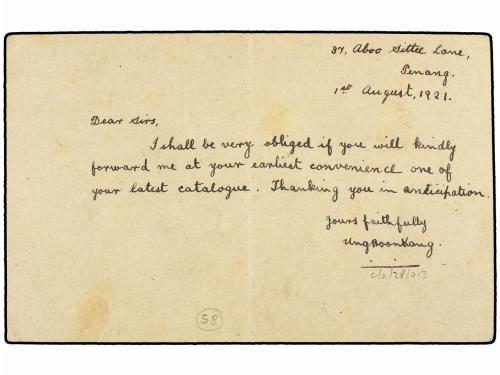 37, Aboo Sittee Lane,
Penang.
1st August, 1921.
Dear Sirs,
I shall be very obliged if you will kindly
forward me at your earliest convenience one of
your latest catalogue. Thanking you in anticipation.
Yours faithfully
Ung Boon Kang.
58